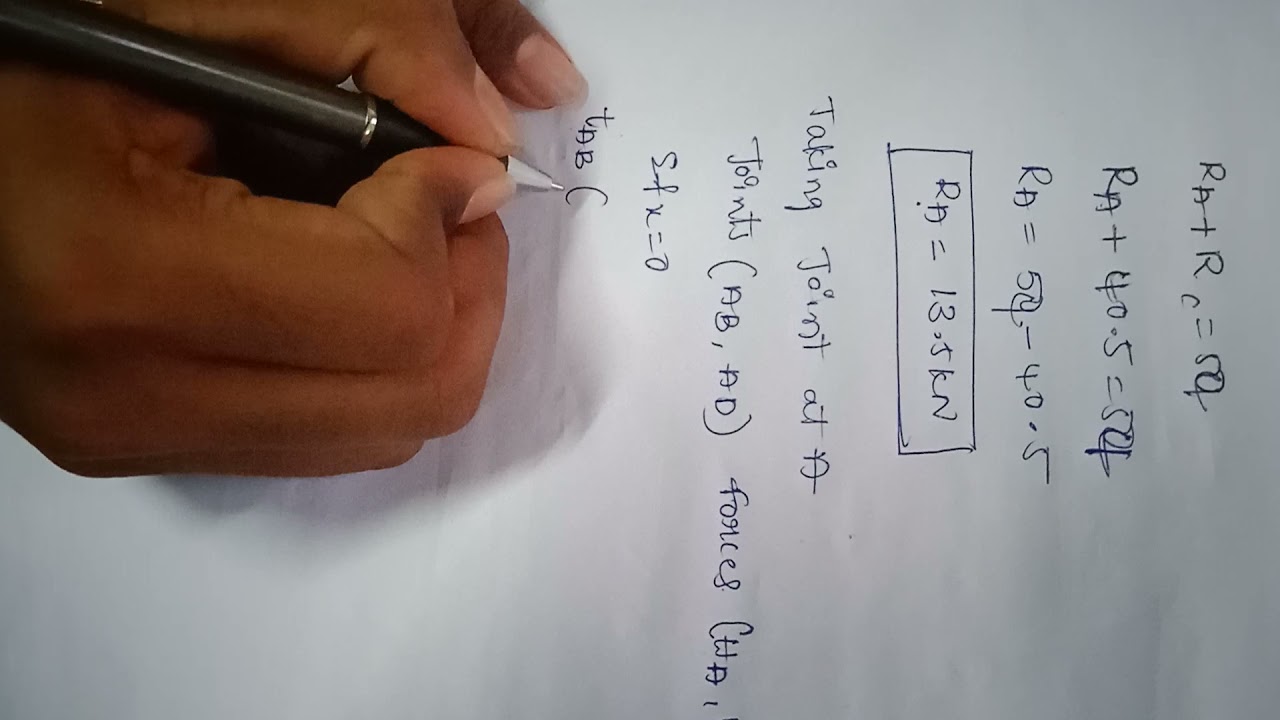 RA + RC = 54
RA + 40.5 = 54
RA = 54 - 40.5
RA = 13.5 kN
Taking Joint at A
Joints (AB, AD) forces (HA,
Σfx = 0
tAB (